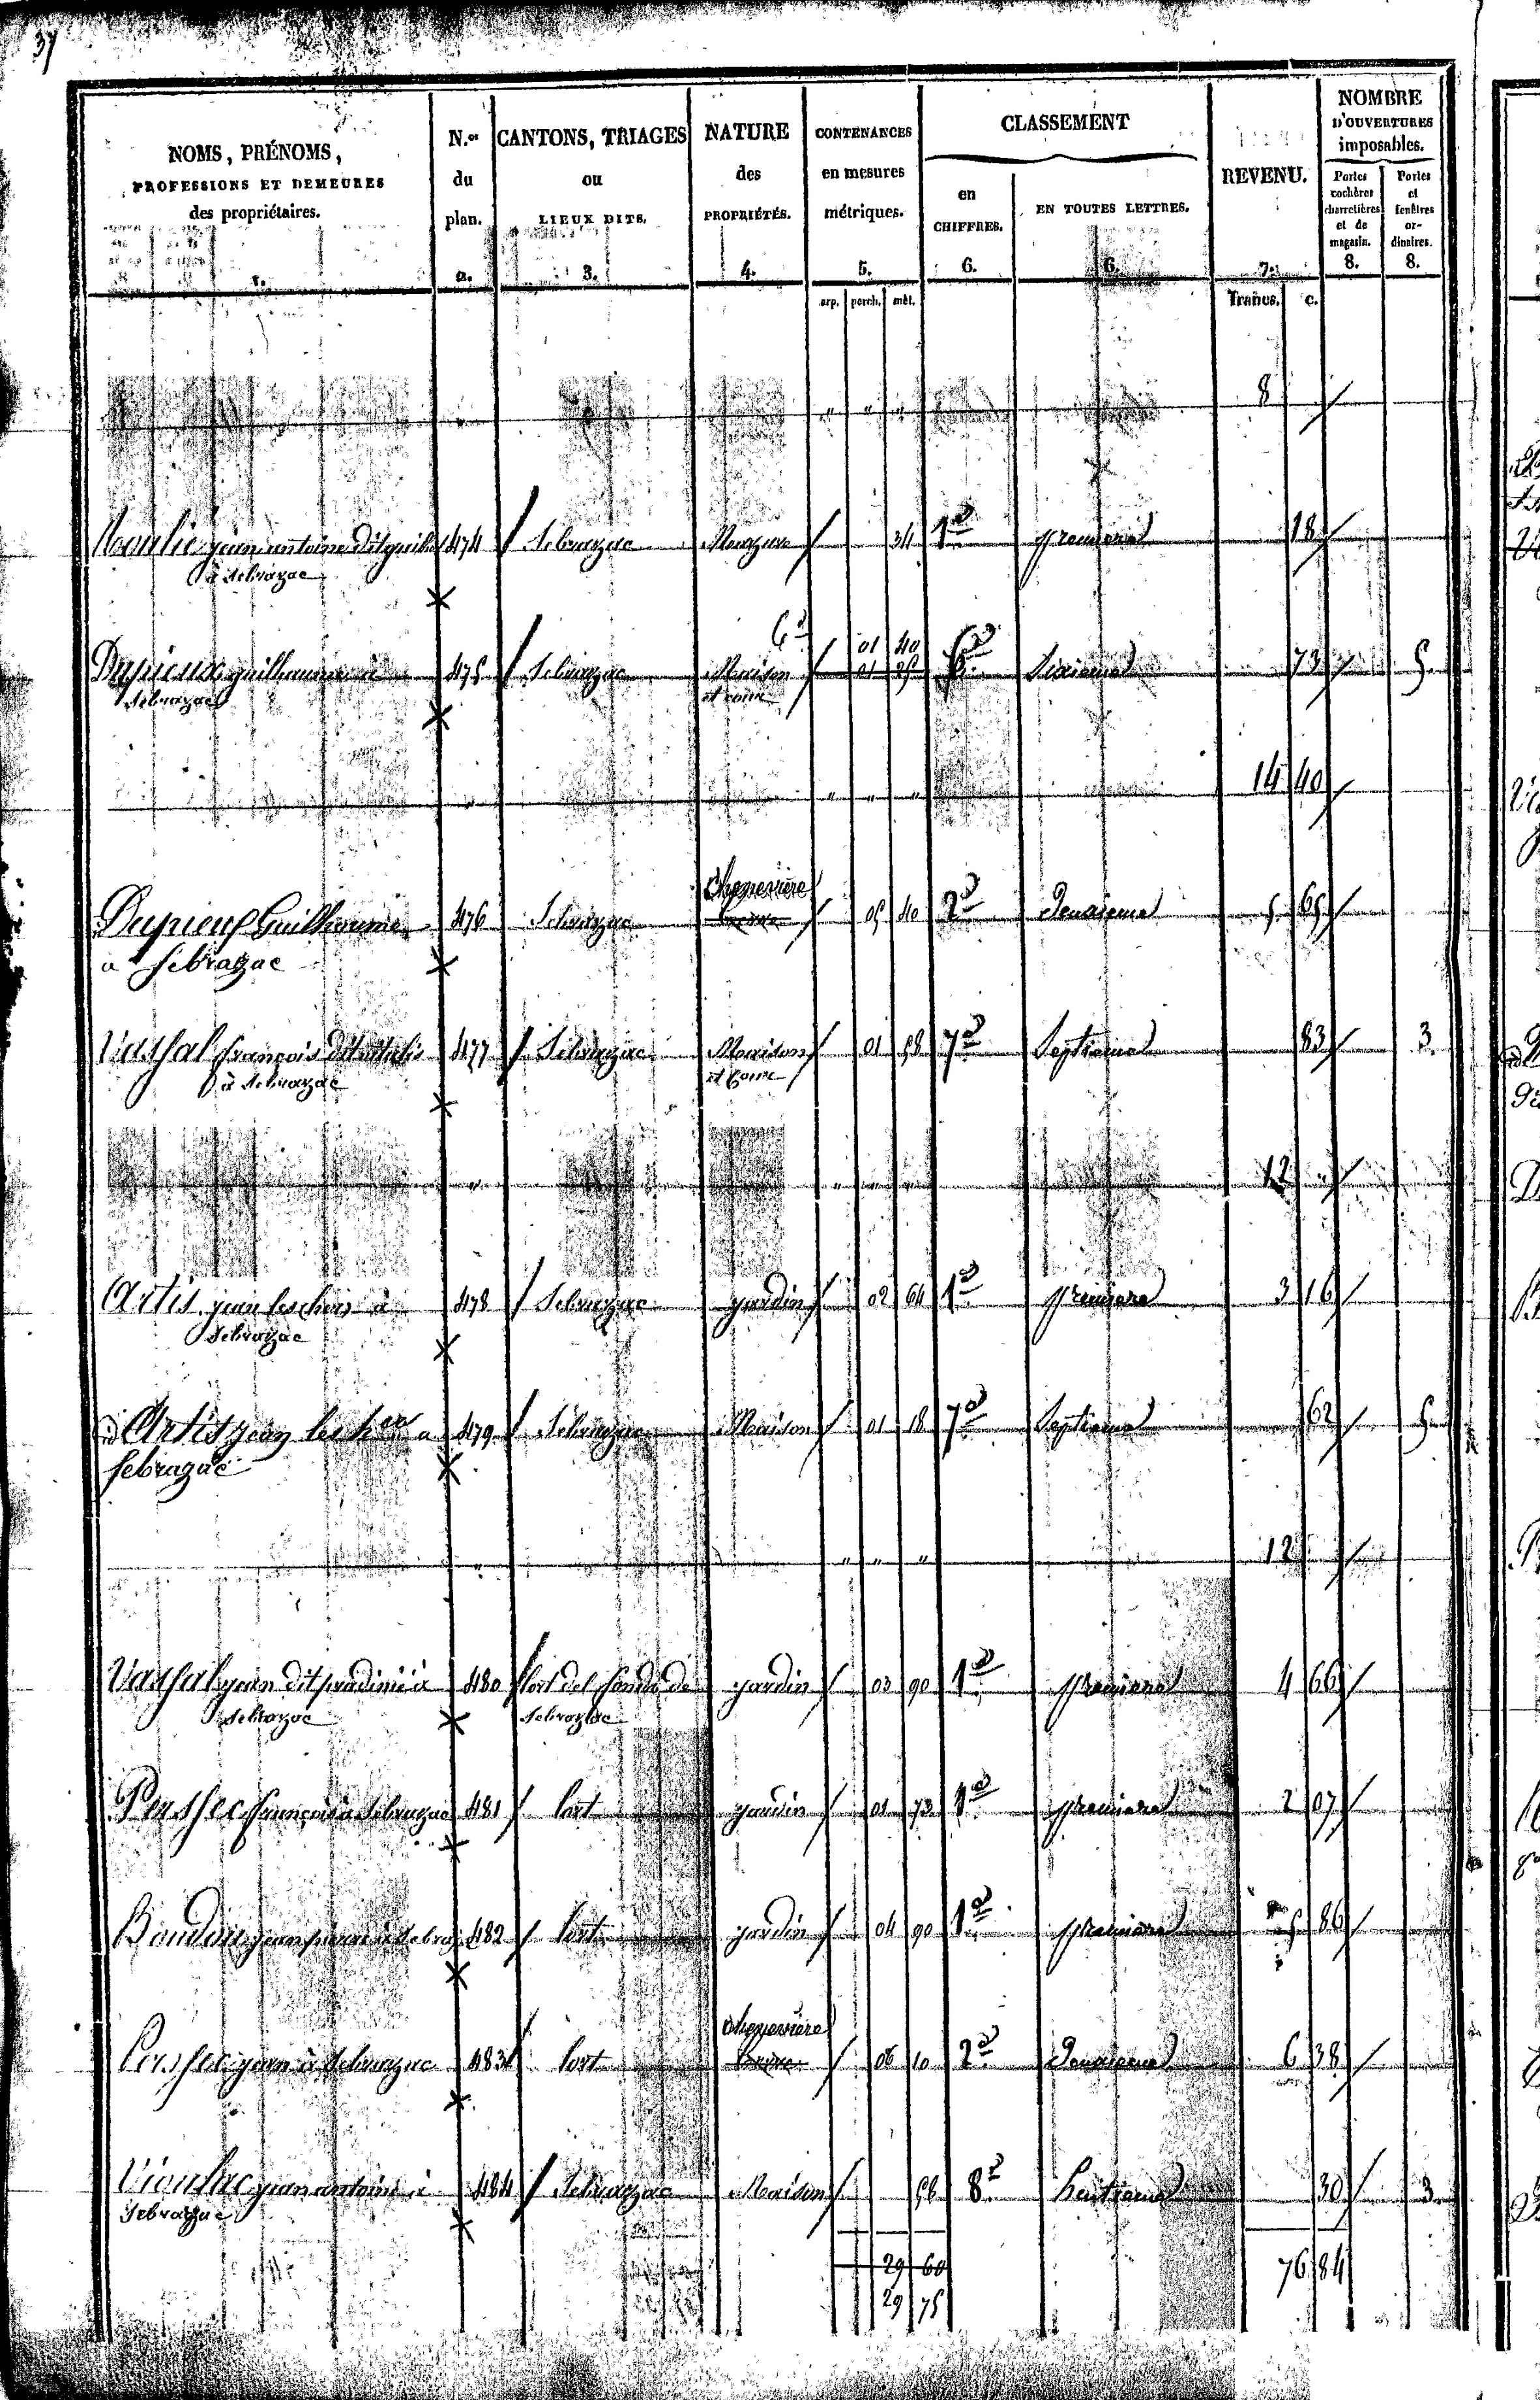 37
NOMS, PRÉNOMS, PROFESSIONS ET DEMEURES des propriétaires. 1.
N.os du plan. 2.
CANTONS, TRIAGES ou LIEUX DITS. 3.
NATURE des PROPRIÉTÉS. 4.
CONTENANCES en mesures métriques. 5.
arp. perch. mèt.
CLASSEMENT
en CHIFFRES. 6.
EN TOUTES LETTRES. 6.
REVENU. 7.
francs. c.
NOMBRE D'OUVERTURES imposables.
Portes cochères charretières et de magasin. 8.
Portes et fenêtres ordinaires. 8.
" " " 8
jean antoine dit 474 Sebrazac Mazure 34 1e premiere 18
à Sebrazac
6e 01 40
Dupieux guillaume à 475 Sebrazac Maison 01 25 6e Sixieme 73 5
Sebrazac et cour
" " " " 14 40
Chenevière
Dupieux Guilhaume 476 Sebrazac 05 40 2e Deuxieme 5 65
a Sebrazac
françois dit 477 Sebrazac Maison 01 58 7e Septieme 83 3
à Sebrazac et Cour
" " " " 12 "
Artis jean les hers à 478 Sebrazac jardin 02 64 1e premiere 3 16
Sebrazac
Artis jean les hers a 479 Sebrazac Maison 01 18 7e Septieme 62 5
Sebrazac
" " " " 12
jean dit à 480 de jardin 03 90 1e premiere 4 66
Sebrazac Sebrazac
françois à Sebrazac 481 lort jardin 01 73 1e premiere 2 07
Boudou jean pierre à 482 lort jardin 04 90 1e premiere 5 86
chenevière
jean à Sebrazac 483 lort 06 10 2e Deuxieme 6 38
Vioulac jean antoine à 484 Sebrazac Maison 58 8e huitieme 30 3
Sebrazac
29 60 76 84
29 75